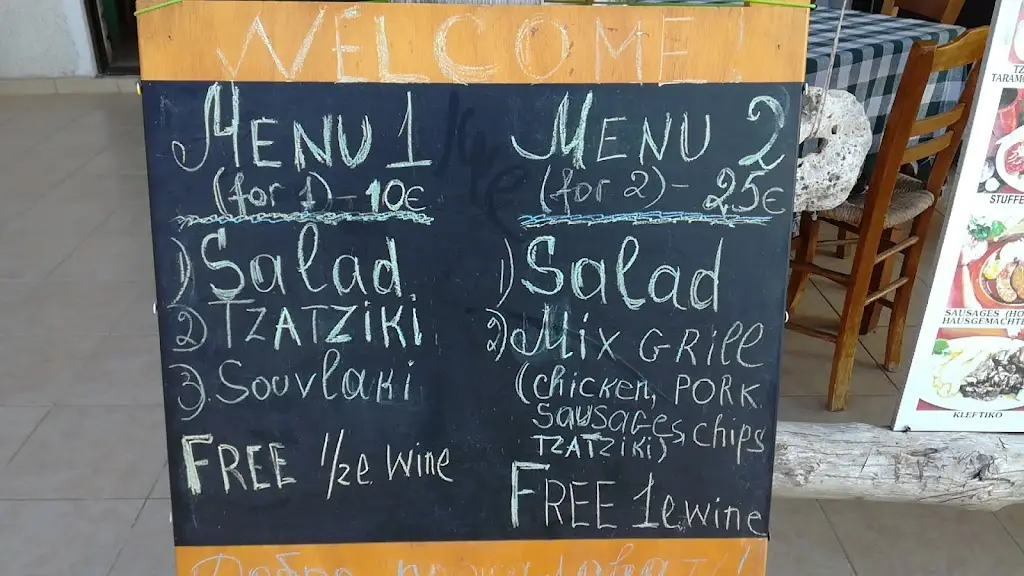 WELCOME!
MENU 1
(for 1) - 10€
1) Salad
2) TZATZIKI
3) Souvlaki
FREE 1/2e wine
MENU 2
(for 2) - 25€
1) Salad
2) Mix GRill
(chicken, PORK
sausages, chips
TZATZIKI)
FREE 1e wine
Добро пожаловать!
TARAM
STUFFE
SAUSAGES (HO
HAUSGEMACHT
KLEFTIKO